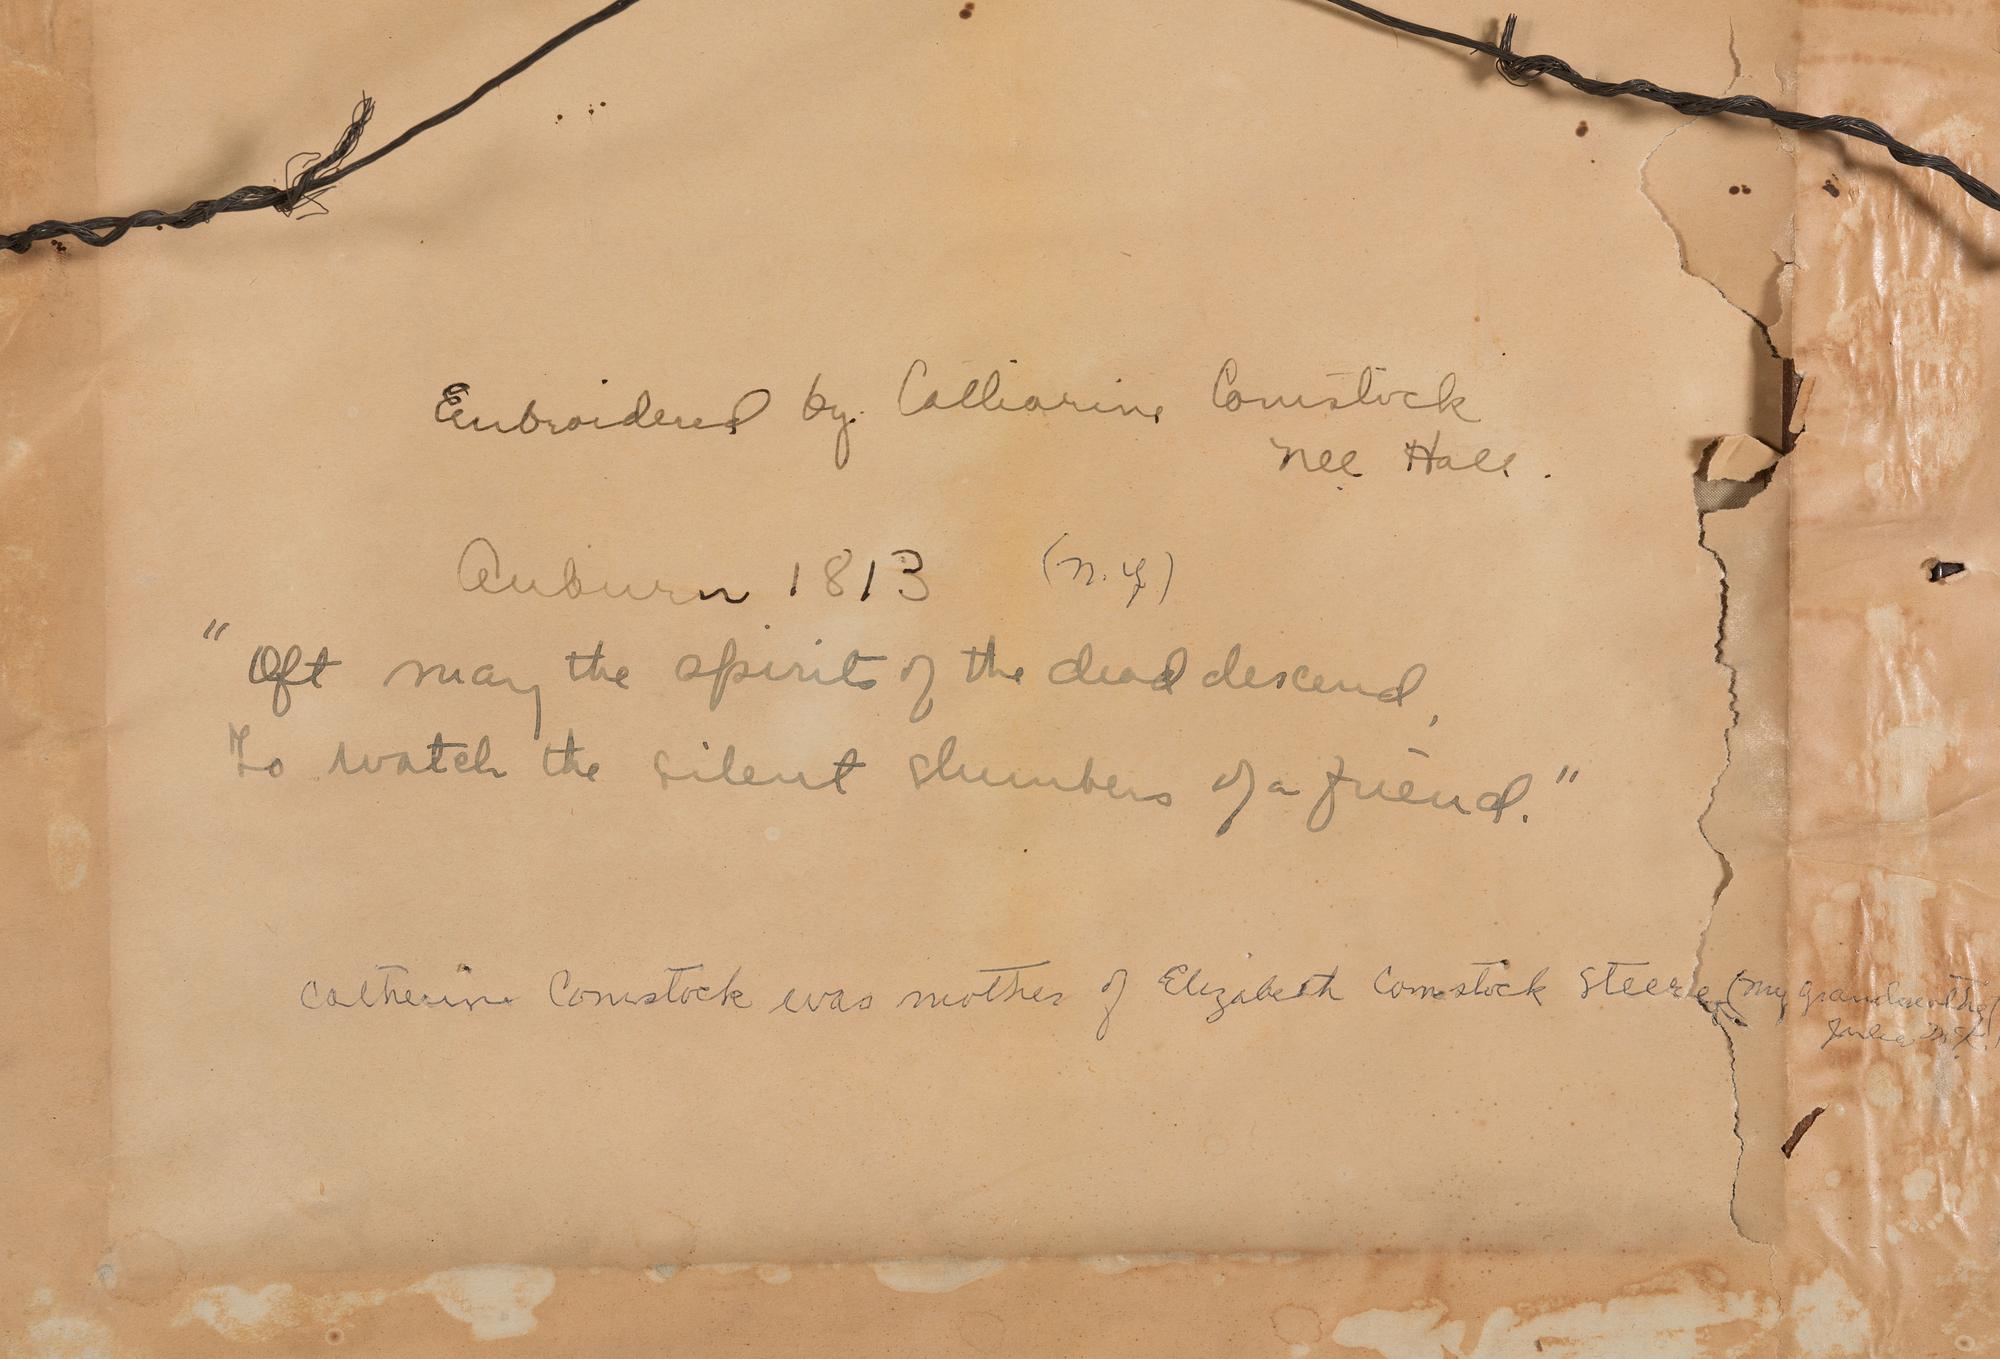 Embroidered by Catharine Comstock
nee Hall.
Auburn 1813 (N.Y)
"Oft may the spirits of the dead descend,
To watch the silent slumbers of a friend."
Catherine Comstock was mother of Elizabeth Comstock Steere (my grandmother)
Julia